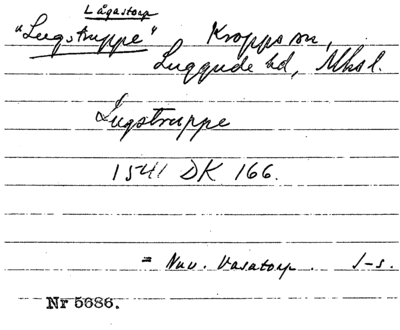 Lågastorp
"Lugstruppe" Kropps sn,
Luggude hd, Mhsl.
Lugstruppe
1541 DK 166.
= Nuv. Vasatorp. J-s.
Nr 5686.